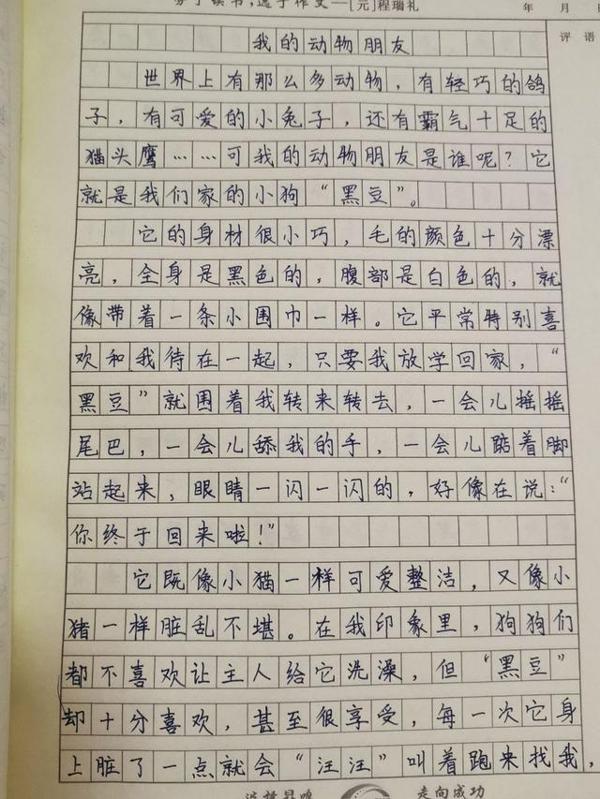 读书,选于作文—[元]程瑞礼
年 月 日
评语
我的动物朋友
世界上有那么多动物，有轻巧的鸽
子，有可爱的小兔子，还有霸气十足的
猫头鹰……可我的动物朋友是谁呢？它
就是我们家的小狗“黑豆”。
它的身材很小巧，毛的颜色十分漂
亮，全身是黑色的，腹部是白色的，就
像带着一条小围巾一样。它平常特别喜
欢和我待在一起，只要我放学回家，“
黑豆”就围着我转来转去，一会儿摇摇
尾巴，一会儿舔我的手，一会儿踮着脚
站起来，眼睛一闪一闪的，好像在说：“
你终于回来啦！”
它既像小猫一样可爱整洁，又像小
猪一样脏乱不堪。在我印象里，狗狗们
都不喜欢让主人给它洗澡，但“黑豆”
却十分喜欢，甚至很享受，每一次它身
上脏了一点就会“汪汪”叫着跑来找我，
走向成功